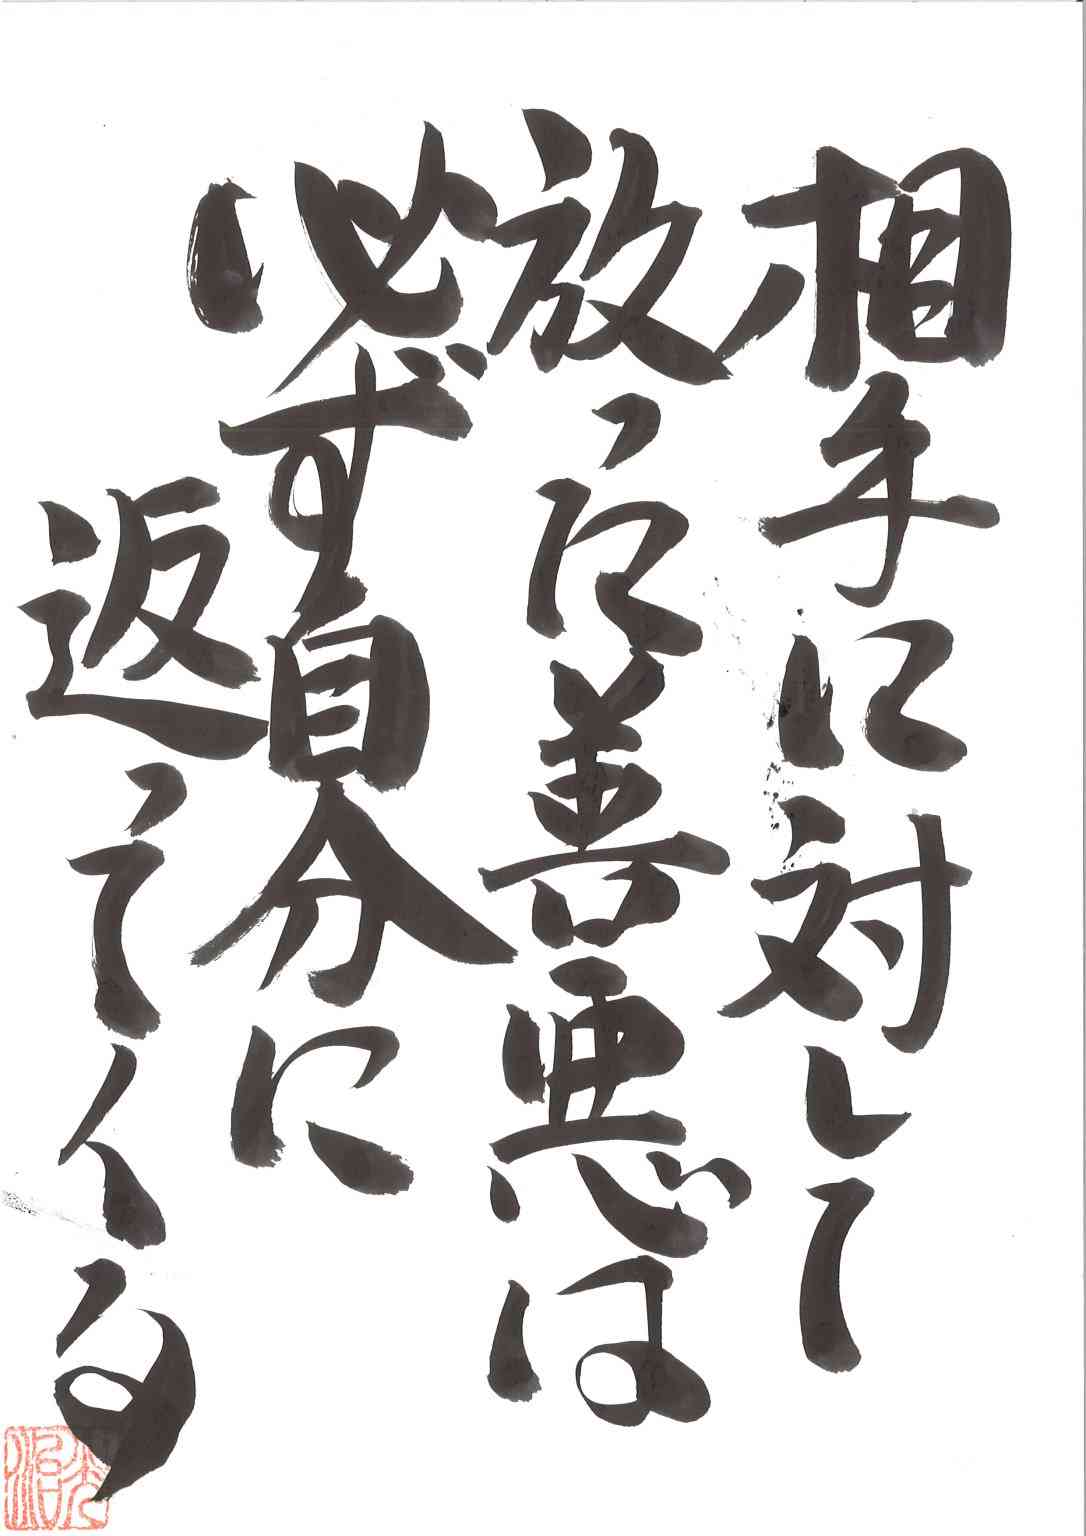 相手に対して
放った善悪は
必ず自分に
返ってくる